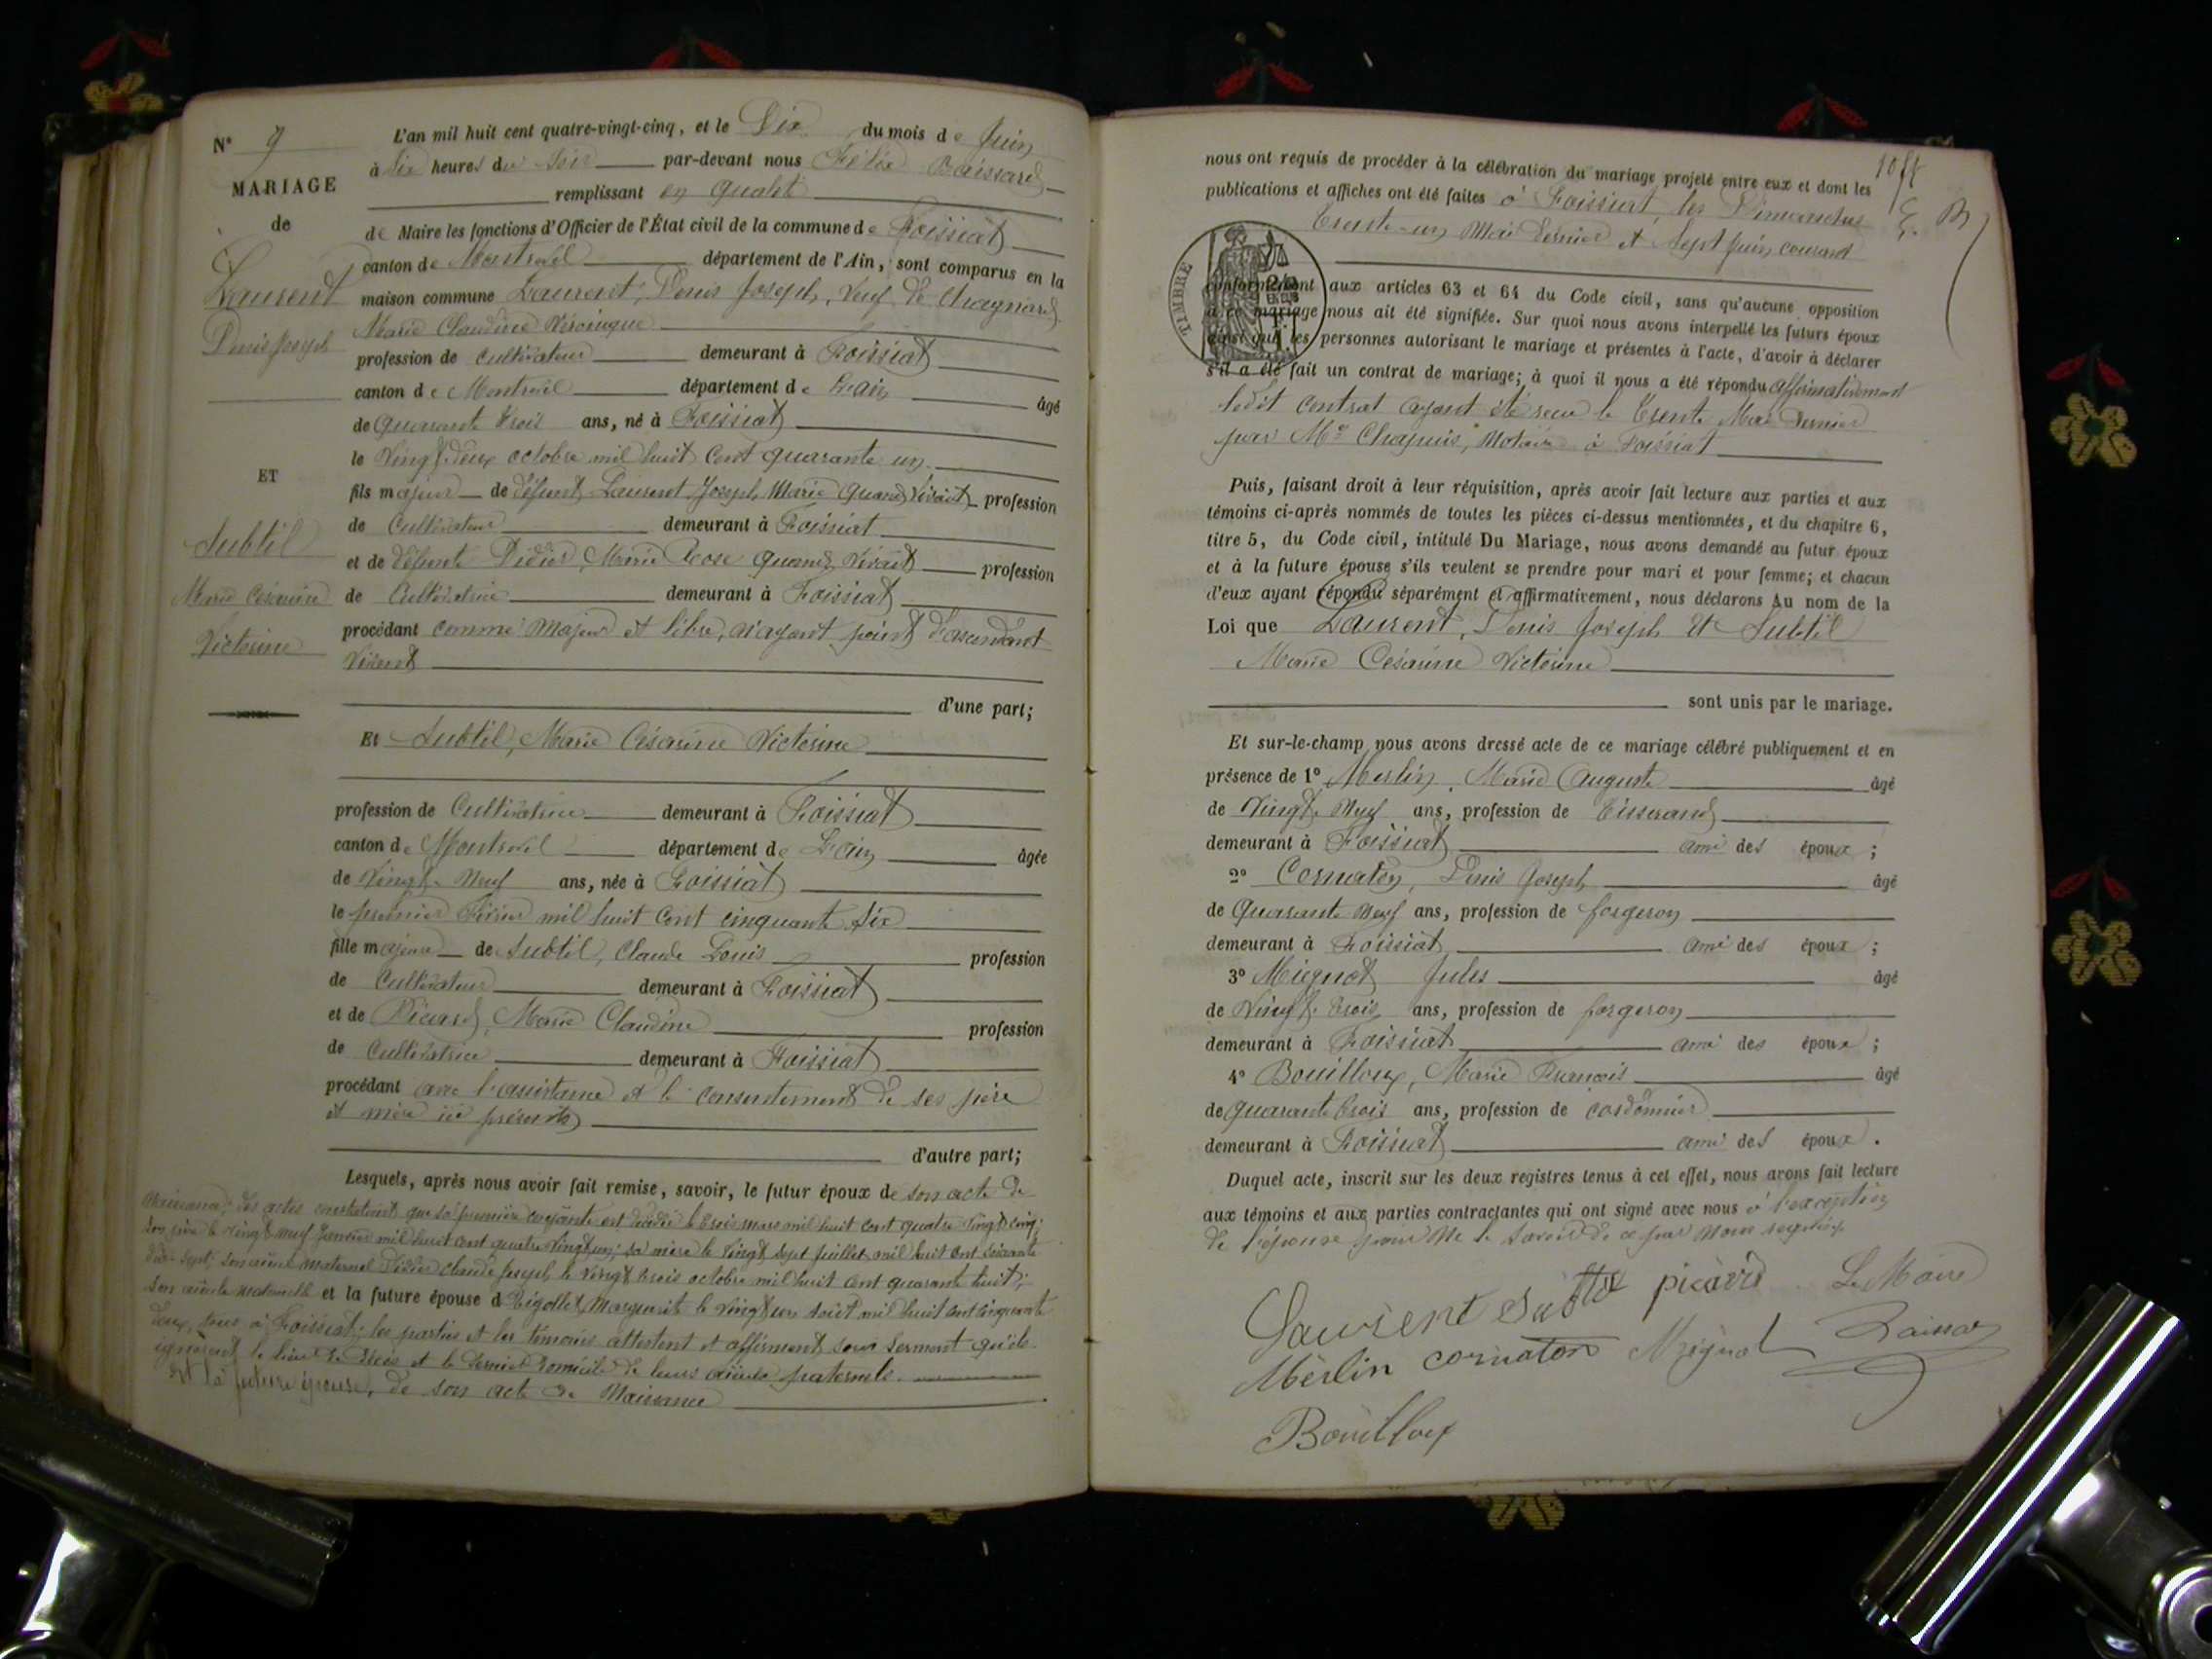 N° 9
MARIAGE
de
Laurent
Denis Joseph
ET
Subtil
Marie Césarine
Victorine
L'an mil huit cent quatre-vingt-cinq, et le Dix du mois de Juin
à Six heures du Soir par-devant nous Félix Raissard
remplissant en qualité
de Maire les fonctions d'Officier de l'État civil de la commune de Foissiat
canton de Montrevel département de l'Ain, sont comparus en la
maison commune Laurent, Denis Joseph, Veuf de Chagnard
Marie Claudine Véronique
profession de Cultivateur demeurant à Foissiat
canton de Montrevel département de L'ain âgé
de Quarante trois ans, né à Foissiat
le Vingt-deux octobre mil huit cent quarante un
fils majeur de défunt Laurent Joseph Marie quand vivait profession
de Cultivateur demeurant à Foissiat
et de défunte Didier, Marie Rose quand vivait profession
de Cultivatrice demeurant à Foissiat
procédant comme majeur et libre, n'ayant point d'ascendant
vivant
d'une part;
Et Subtil, Marie Césarine Victorine
profession de Cultivatrice demeurant à Foissiat
canton de Montrevel département de L'ain âgée
de Vingt-Neuf ans, née à Foissiat
le premier Février mil huit cent cinquante six
fille majeure de Subtil, Claude Louis profession
de Cultivateur demeurant à Foissiat
et de Picard, Marie Claudine profession
de Cultivatrice demeurant à Foissiat
procédant avec l'assistance et le consentement de ses père
et mère ici présents
d'autre part;
Lesquels, après nous avoir fait remise, savoir, le futur époux de son acte de
naissance; des actes constatant que sa première conjointe est décédée le trois mars mil huit cent quatre vingt cinq;
son père le vingt neuf Janvier mil huit cent quatre vingt un; sa mère le vingt sept juillet mil huit cent soixante
dix-sept; son aïeul maternel Didier Claude Joseph, le vingt trois octobre mil huit cent quarante huit;
son aïeule maternelle et la future épouse d Tigollet, Marguerite le vingt un août mil huit cent cinquante
deux, tous à Foissiat; les parties et les témoins attestent et affirment sous serment qu'ils
ignorent le lieu de décès et le dernier domicile de leurs aïeuls paternels.
Et la future épouse, de son acte de Naissance
nous ont requis de procéder à la célébration du mariage projeté entre eux et dont les
publications et affiches ont été faites à Foissiat, les Dimanches
trente-un Mai dernier et Sept Juin courant
TIMBRE
conformément aux articles 63 et 64 du Code civil, sans qu'aucune opposition
à ce mariage nous ait été signifiée. Sur quoi nous avons interpellé les futurs époux
ainsi que les personnes autorisant le mariage et présentes à l'acte, d'avoir à déclarer
s'il a été fait un contrat de mariage; à quoi il nous a été répondu affirmativement
ledit contrat ayant été reçu le trente Mai dernier
par Me Chapuis, Notaire à Foissiat
Puis, faisant droit à leur réquisition, après avoir fait lecture aux parties et aux
témoins ci-après nommés de toutes les pièces ci-dessus mentionnées, et du chapitre 6,
titre 5, du Code civil, intitulé Du Mariage, nous avons demandé au futur époux
et à la future épouse s'ils veulent se prendre pour mari et pour femme; et chacun
d'eux ayant répondu séparément et affirmativement, nous déclarons Au nom de la
Loi que Laurent, Denis Joseph Et Subtil
Marie Césarine Victorine
sont unis par le mariage.
Et sur-le-champ nous avons dressé acte de ce mariage célébré publiquement et en
présence de 1° Merlin, Marie Auguste âgé
de Vingt-Neuf ans, profession de Tisserand
demeurant à Foissiat ami des époux ;
2° Cornaton, Denis Joseph âgé
de Quarante Neuf ans, profession de forgeron
demeurant à Foissiat ami des époux ;
3° Mignot Jules âgé
de Vingt-trois ans, profession de forgeron
demeurant à Foissiat ami des époux ;
4° Bouilloux, Marie François âgé
de quarante trois ans, profession de cordonnier
demeurant à Foissiat ami des époux .
Duquel acte, inscrit sur les deux registres tenus à cet effet, nous avons fait lecture
aux témoins et aux parties contractantes qui ont signé avec nous à l'exception
de l'épouse pour ne le savoir de ce par nous requise
Laurent Subtil picard Le Maire
Merlin cornaton Mignot Raissard
Bouilloux